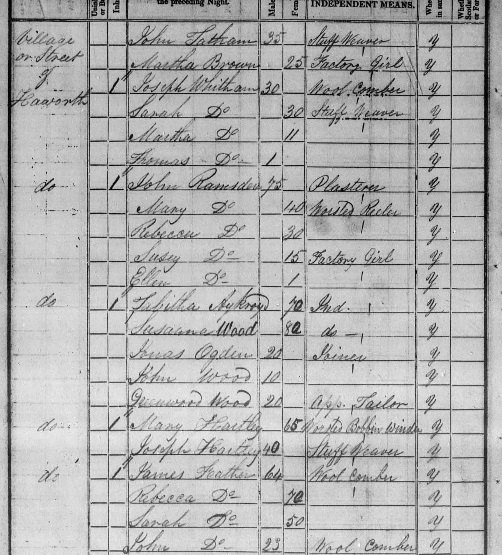 the preceding Night. Male Fem INDEPENDENT MEANS.
Village John Tatham 35 Stuff Weaver y
or Street Martha Brown 25 Factory Girl y
of 1 Joseph Whitham 30 Wool Comber y
Haworth Sarah Do 30 Stuff Weaver y
Martha Do 11 y
Thomas Do 1 y
do 1 John Ramsden 75 Plasterer y
Mary Do 40 Worsted Reeler y
Rebecca Do 30 y
Susey Do 15 Factory Girl y
Ellen Do 1 y
do 1 Tabitha Aykroyd 70 Ind. y
Susanna Wood 80 do y
Jonas Ogden 20 Joiner y
John Wood 10 y
Greenwood Wood 20 App. Tailor y
do 1 Mary Hartley 65 Worsted Bobbin Winder y
Joseph Hartley 40 Stuff Weaver y
do 1 James Feather 64 Wool Comber y
Rebecca Do 70 y
Sarah Do 50 y
John Do 23 Wool Comber y